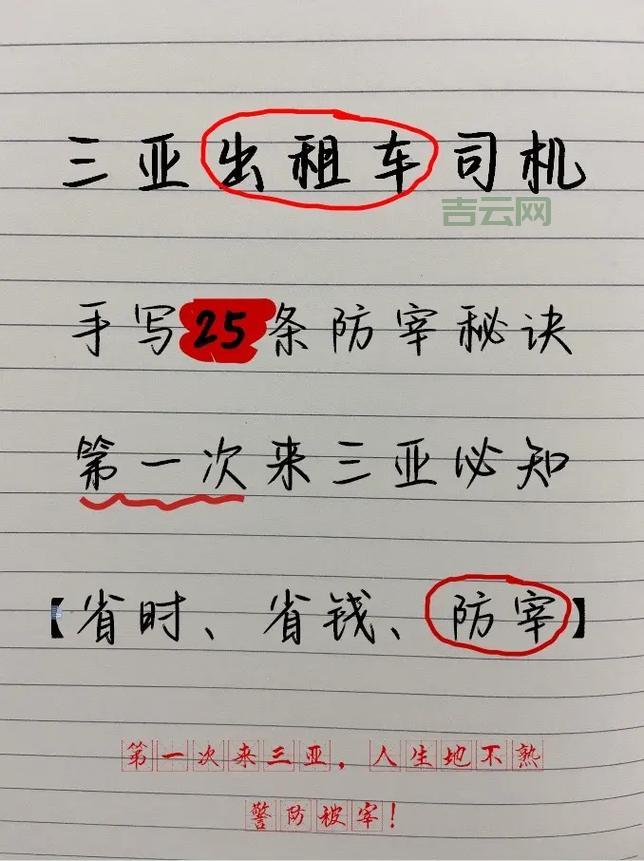 三亚出租车司机
吉云网
手写25条防宰秘诀
第一次来三亚必知
【省时、省钱、防宰】
第一次来三亚，人生地不熟
警防被宰！